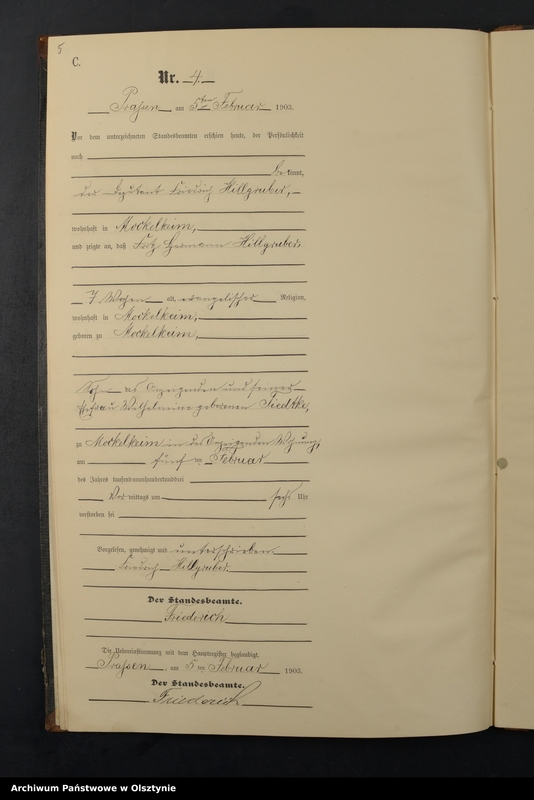 5
C.
Nr. 4.
Prassen am 5ten Februar 1903.
Vor dem unterzeichneten Standesbeamten erschien heute, der Persönlichkeit
nach
be kannt,
der Deputant Friedrich Hillgruber,
wohnhaft in Mockelkeim,
und zeigte an, daß Fritz Hermann Hillgruber
7 Wochen alt, evangelischer Religion,
wohnhaft in Mockelkeim,
geboren zu Mockelkeim,
Sohn des Anzeigenden und seiner
Ehefrau Wilhelmine geborenen Tiedtke,
zu Mockelkeim in des Anzeigenden Wohnung,
am fünf ten Februar
des Jahres tausendneunhundertunddrei
Vor mittags um sechs Uhr
verstorben sei
Vorgelesen, genehmigt und unterschrieben
Friedrich Hillgruber.
Der Standesbeamte.
Friederich
Die Uebereinstimmung mit dem Hauptregister beglaubigt.
Prassen, am 5ten Februar 1903.
Der Standesbeamte.
Friederich
Archiwum Państwowe w Olsztynie